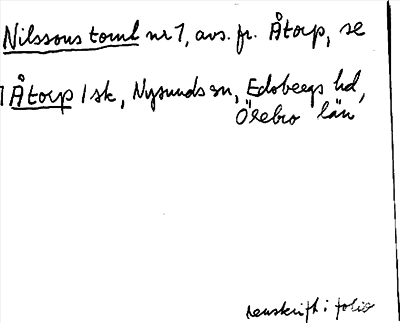 Nilssons toml nr 1, avs. fr. Åtorp, se
Åtorp 1 sk, Nysunds sn, Edsbergs hd,
Örebro län
renskrift i folio